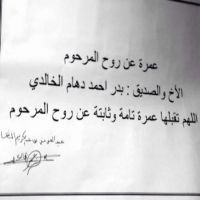 عمرة عن روح المرحوم
الأخ والصديق : بدر احمد دهام الخالدي
اللهم تقبلها عمرة تامة وثابتة عن روح المرحوم